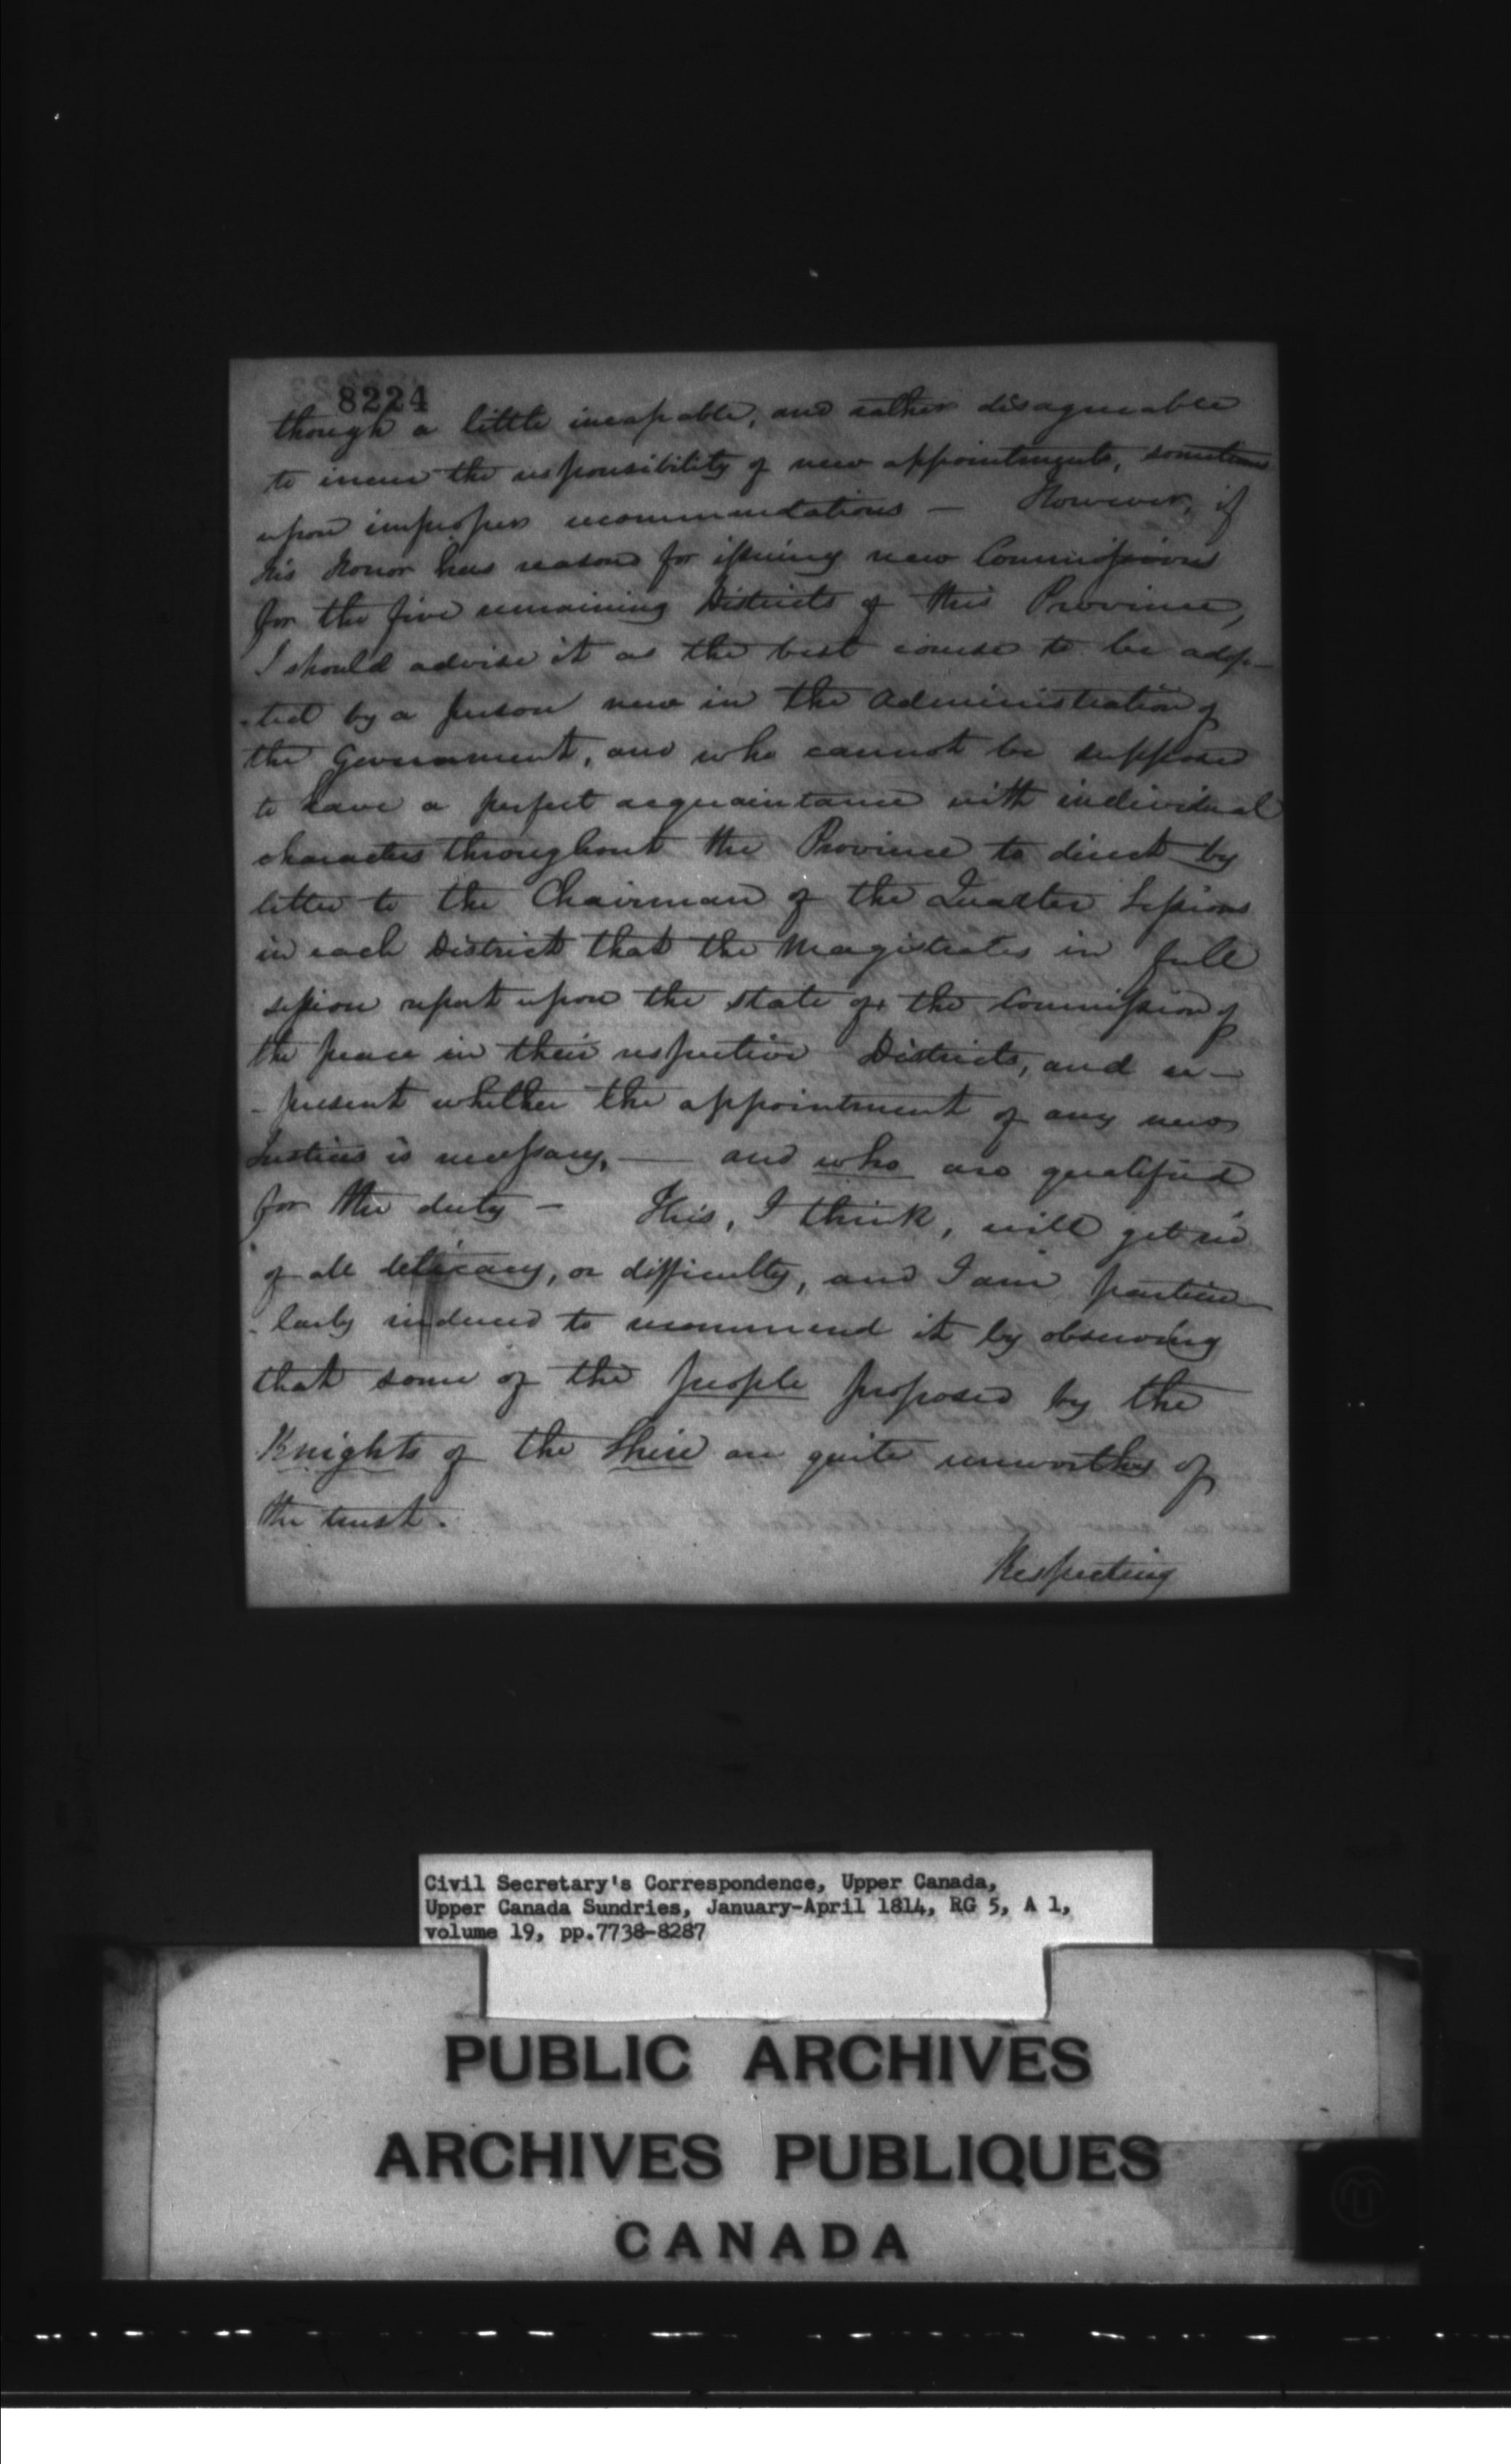 8224
though a little incapable, and rather disagreeable
to incur the responsibility of new appointments, sometimes
upon improper recommendations — However, if
His Honor has reasons for issuing new Commissions
for the five remaining Districts of this Province,
I should advise it as the best course to be adop-
-ted by a person new in the Administration of
the Government, and who cannot be supposed
to have a perfect acquaintance with individual
characters throughout the Province to direct by
letter to the Chairman of the Quarter Sessions
in each District that the Magistrates in full
session report upon the state of the Commission of
the peace in their respective Districts, and re-
-present whether the appointment of any new
Justices is necessary, — and who are qualified
for the duty — This, I think, will get rid
of all delicacy, or difficulty, and I am particu-
-larly induced to recommend it by observing
that some of the people proposed by the
Knights of the Shire are quite unworthy of
the trust.
Respecting
Civil Secretary's Correspondence, Upper Canada,
Upper Canada Sundries, January-April 1814, RG 5, A 1,
volume 19, pp.7738-8287
PUBLIC ARCHIVES
ARCHIVES PUBLIQUES
CANADA